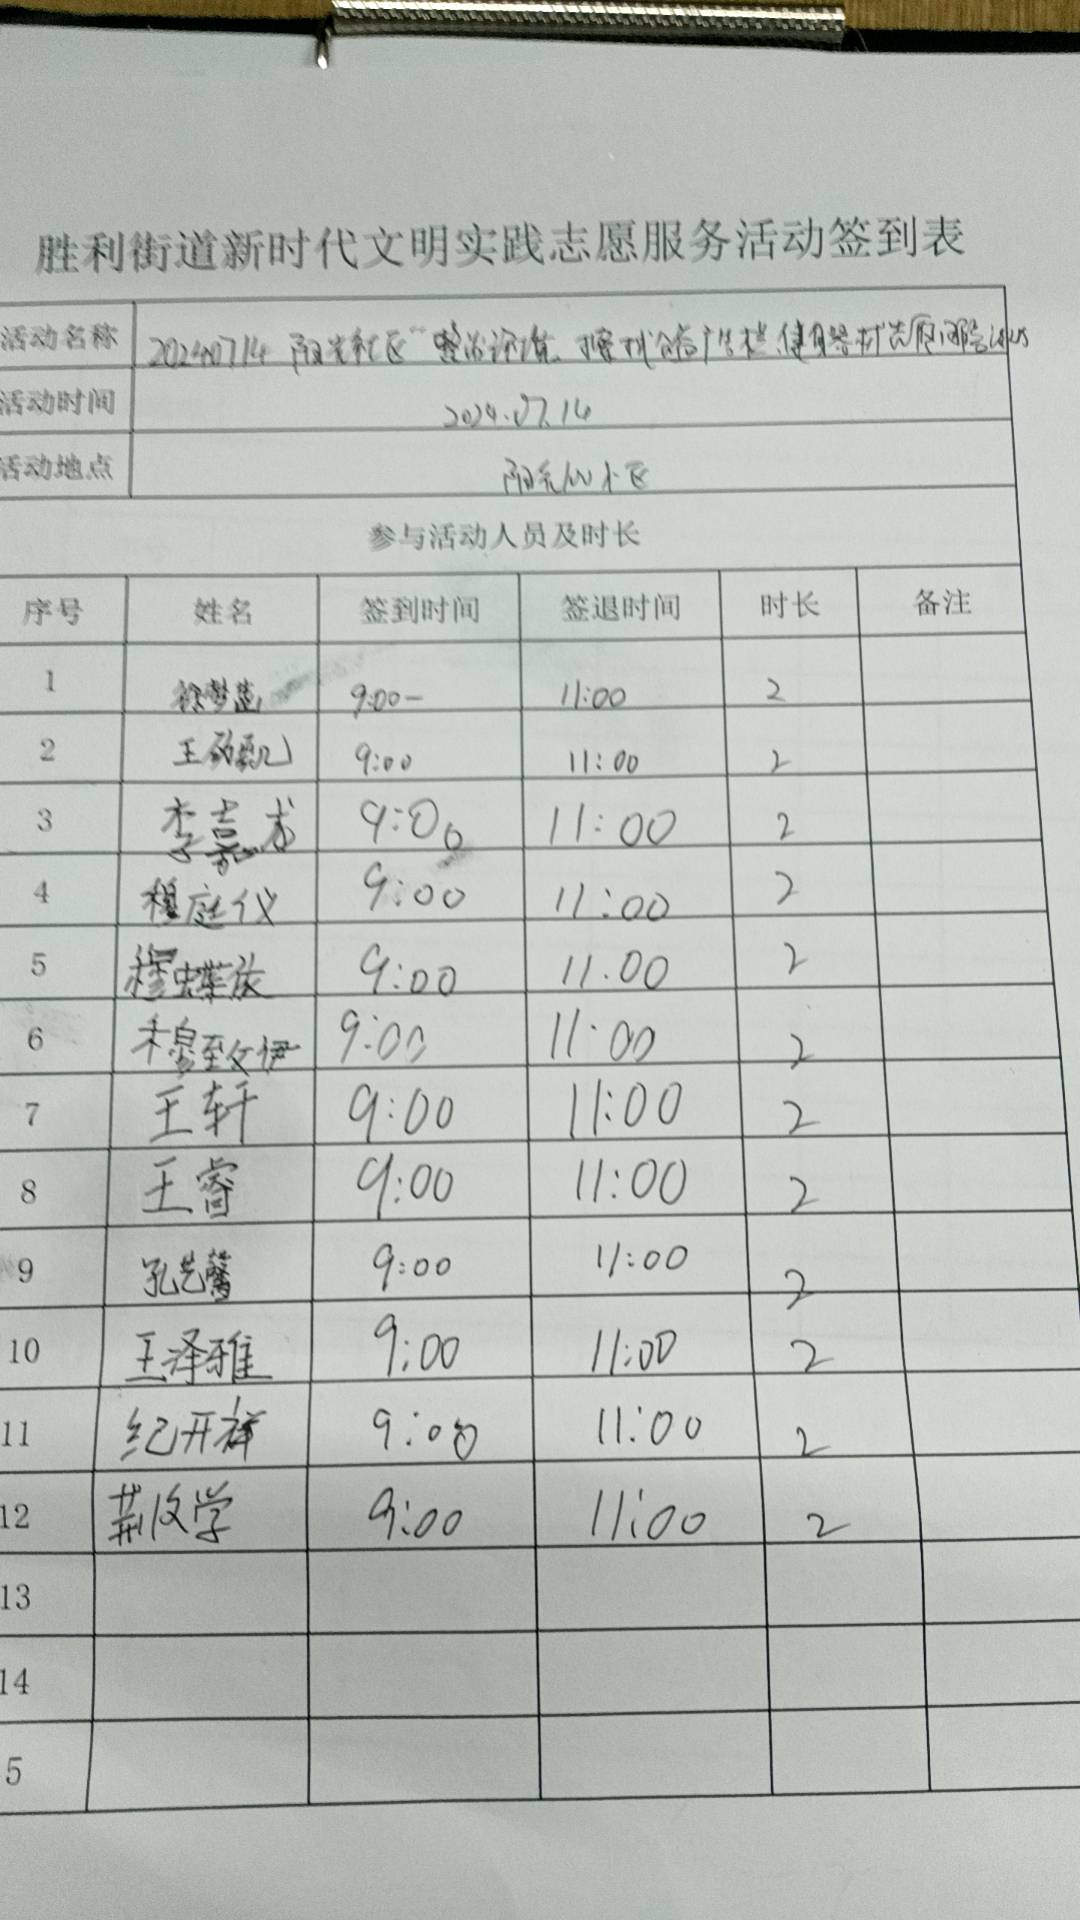 胜利街道新时代文明实践志愿服务活动签到表
活动名称 20240714 阳光社区"整治环境 健身器材志愿服务活动
活动时间 2024.07.14
活动地点 阳光100小区
参与活动人员及时长
序号 姓名 签到时间 签退时间 时长 备注
1 徐梦莲 9:00- 11:00 2
2 王 凯 9:00 11:00 2
3 李嘉 9:00 11:00 2
4 穆庭仪 9:00 11:00 2
5 穆蝶 9:00 11:00 2
6 穆 伊 9:00 11:00 2
7 王轩 9:00 11:00 2
8 王睿 9:00 11:00 2
9 孔艺馨 9:00 11:00 2
10 王泽雅 9:00 11:00 2
11 纪开祥 9:00 11:00 2
12 荆 学 9:00 11:00 2
13
14
5